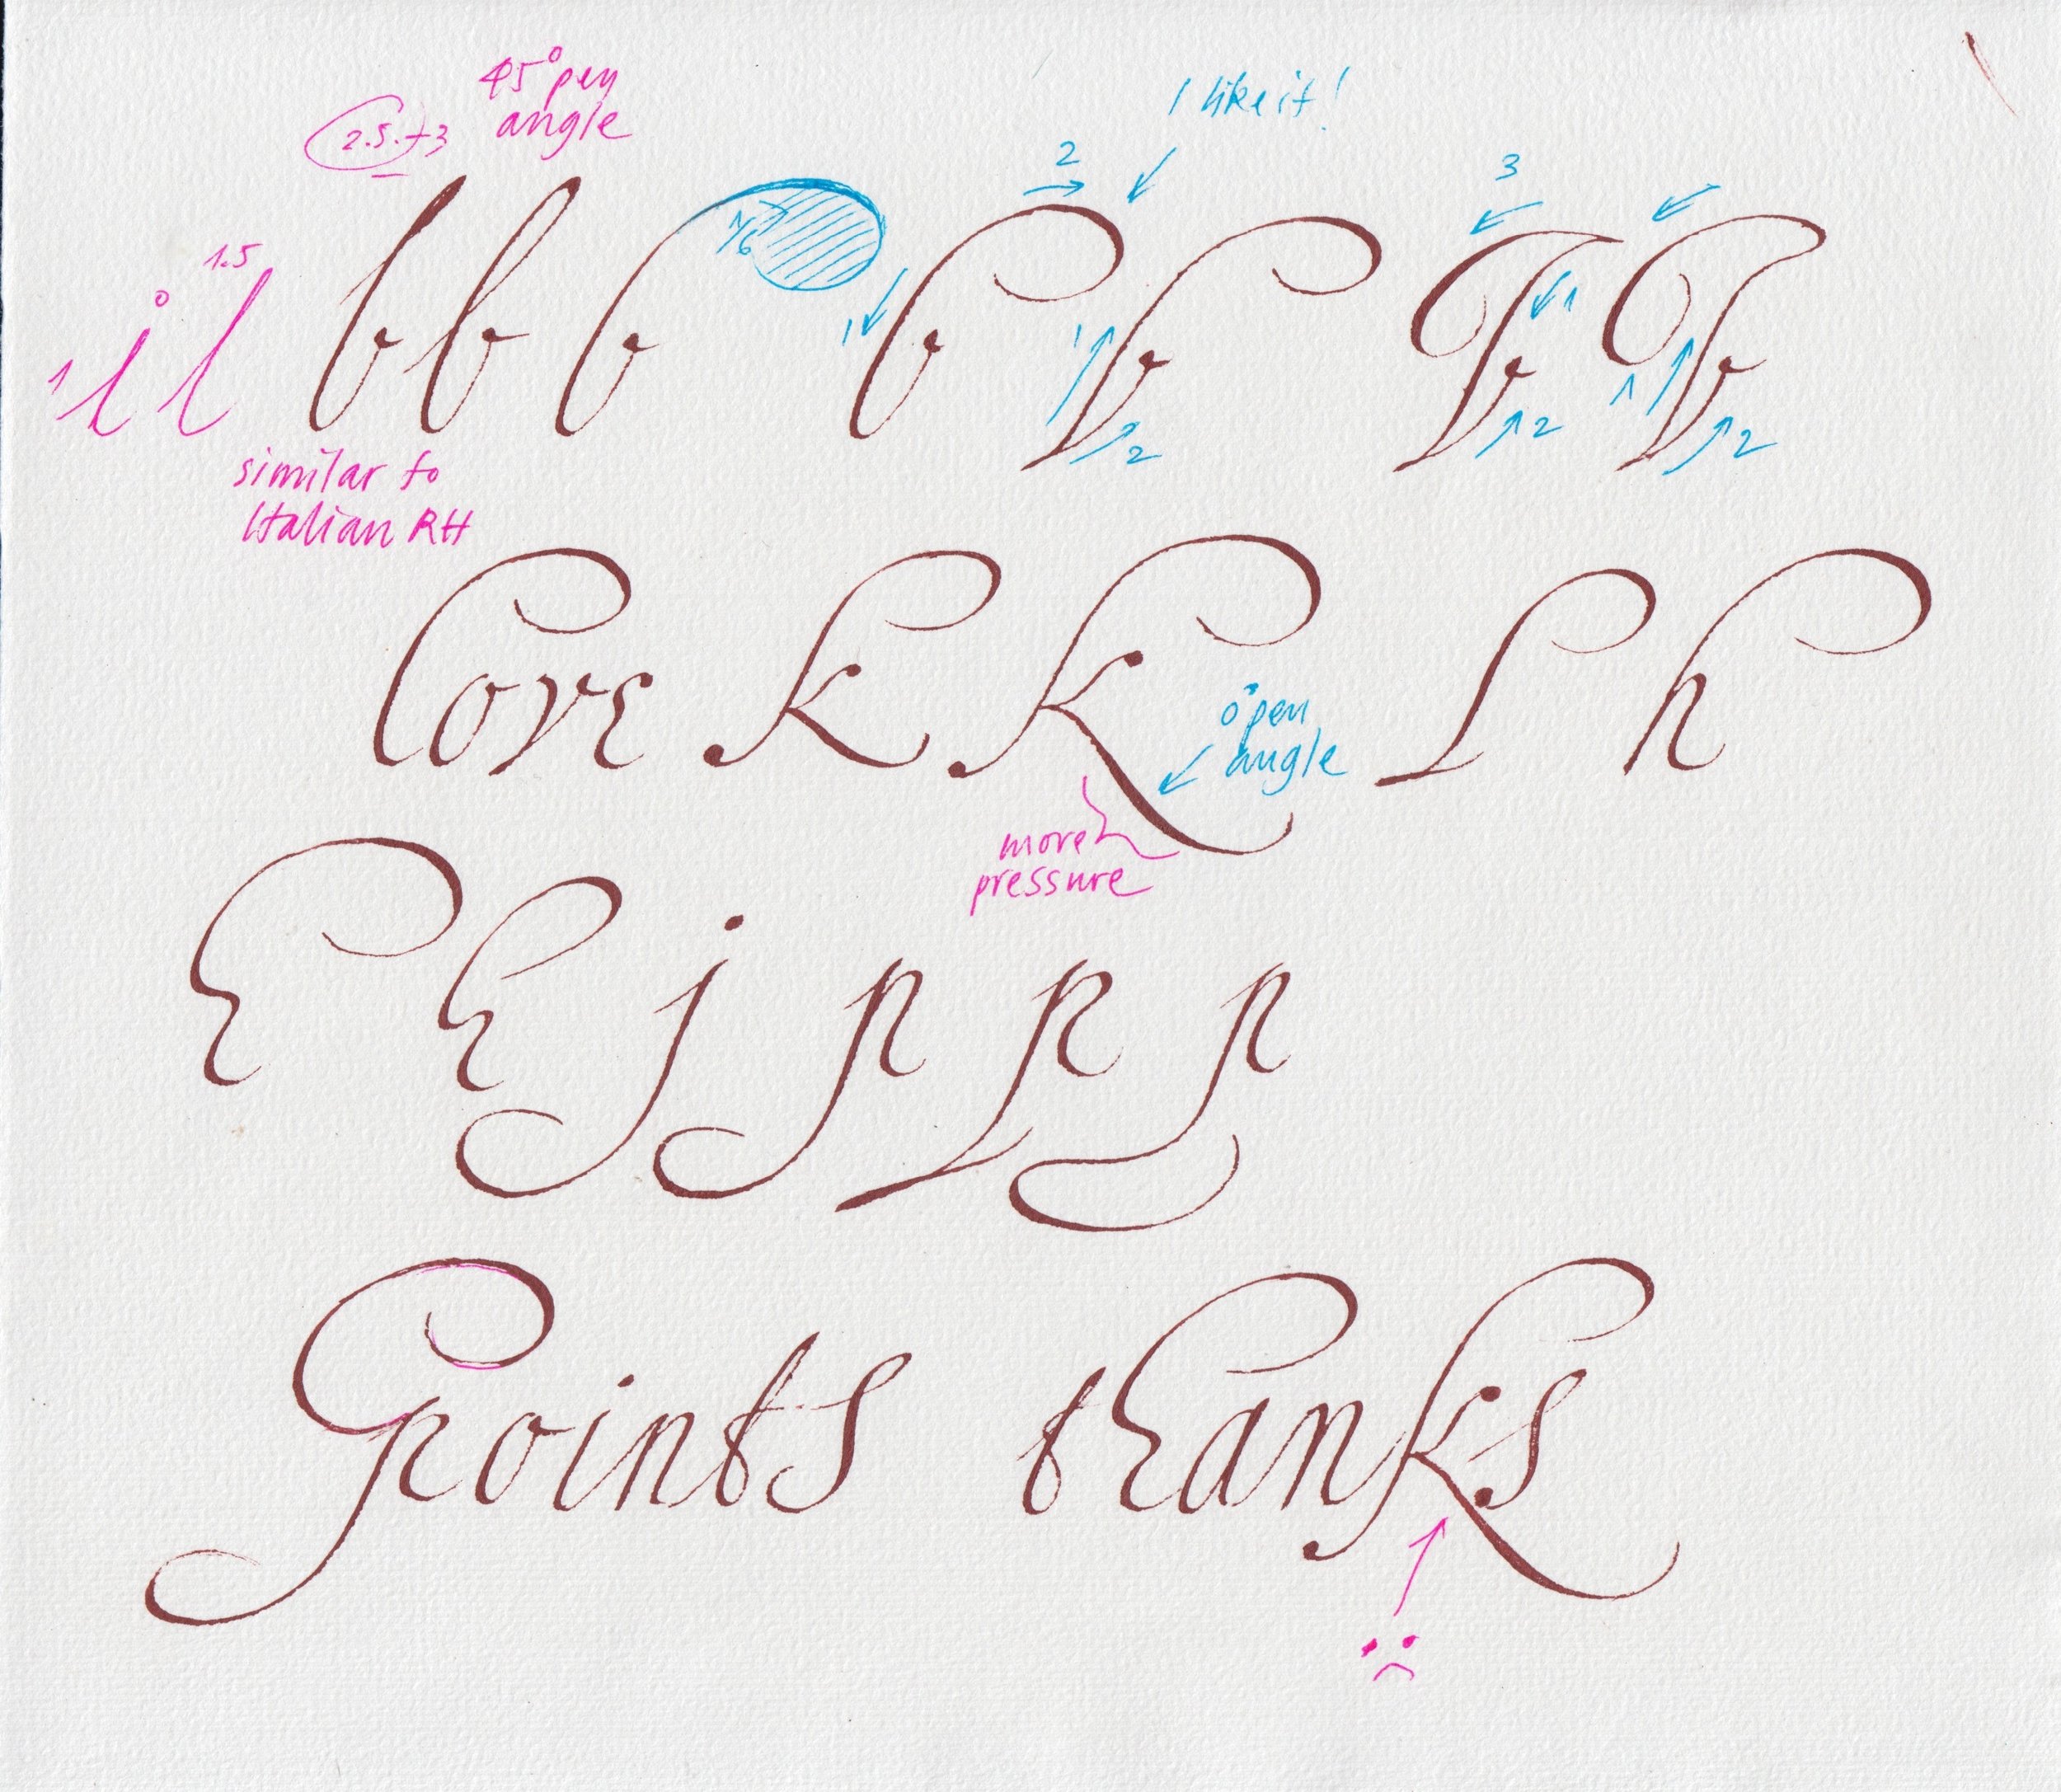 45° pen
angle
2.5.-3
I like it!
2
3
1.5
1 i l b b b b b b b
1 1 1 1
2 2 2
similar to
Italian RH
love k. k l h
open
angle
more
pressure
h h j p p p
points thanks